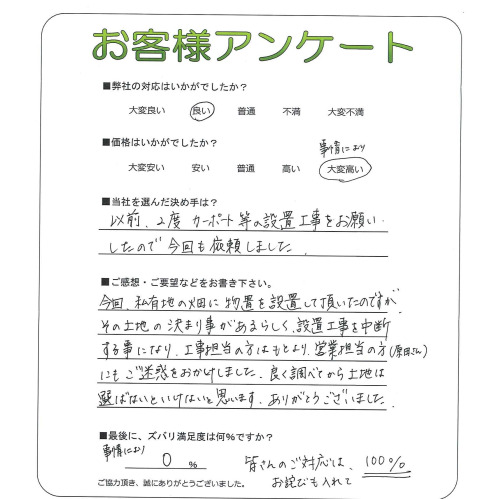 お客様アンケート
■弊社の対応はいかがでしたか？
大変良い 良い 普通 不満 大変不満
■価格はいかがでしたか？
事情により
大変安い 安い 普通 高い 大変高い
■当社を選んだ決め手は？
以前、2度 カーポート等の設置工事をお願い
したので今回も依頼しました
■ご感想・ご要望などをお書き下さい。
今回、私有地の畑に物置を設置して頂いたのですが
その土地の決まり事があるらしく、設置工事を中断
する事になり、工事担当の方はもとより、営業担当の方(原田さん)
にもご迷惑をおかけしました。良く調べてから土地は
選ばないといけないと思います。ありがとうございました。
■最後に、ズバリ満足度は何％ですか？
事情により
0 %
皆さんのご対応は、100%
お詫びも入れて
ご協力頂き、誠にありがとうございました。